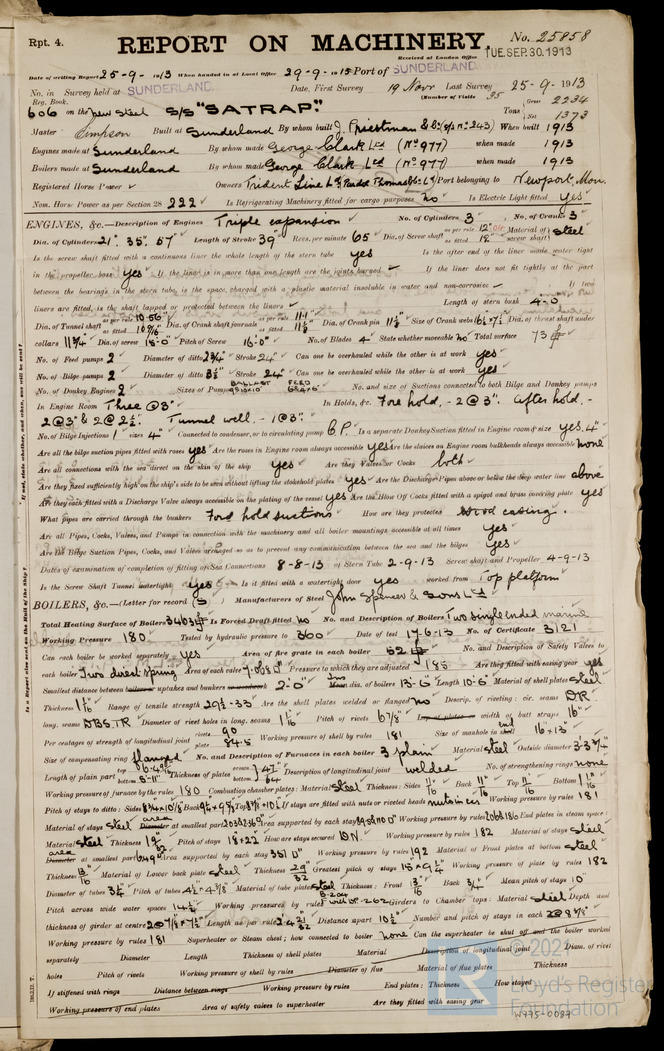 Rpt. 4.
REPORT ON MACHINERY.
No. 25858
Received at London Office
TUE. SEP. 30. 1913
Date of writing Report 25-9-1913 When handed in at Local Office 29-9-1913 Port of SUNDERLAND.
No. in Survey held at SUNDERLAND Date, First Survey 19 Novr Last Survey 25-9-1913
Reg. Book. (Number of Visits 35
606 on the New Steel S/S "SATRAP." Tons Gross 2234 Net 1373
Master Simpson Built at Sunderland By whom built J. Priestman & Co (S/S No 243) When built 1913
Engines made at Sunderland By whom made George Clark Ltd (No 977) when made 1913
Boilers made at Sunderland By whom made George Clark Ltd (No 977) when made 1913
Registered Horse Power Owners Trident Line Ld Port belonging to Newport, Mon.
Nom. Horse Power as per Section 28 222 Is Refrigerating Machinery fitted for cargo purposes no Is Electric Light fitted yes
ENGINES, &c.—Description of Engines Triple expansion No. of Cylinders 3 No. of Cranks 3
Dia. of Cylinders 21" 35" 57" Length of Stroke 39" Revs. per minute 65 Dia. of Screw shaft as per rule as fitted Material of screw shaft steel
Is the screw shaft fitted with a continuous liner the whole length of the stern tube yes Is the after end of the liner made water tight
in the propeller boss yes If the liner is in more than one length are the joints burned If the liner does not fit tightly at the part
between the bearings in the stern tube, is the space charged with a plastic material insoluble in water and non-corrosive If two
liners are fitted, is the shaft lapped or protected between the liners Length of stern bush 4-0
Dia. of Tunnel shaft as per rule 10.56 as fitted Dia. of Crank shaft journals as per rule 11.1 as fitted Dia. of Crank pin Size of Crank webs Dia. of thrust shaft under
collars 11 3/4 Dia. of screw 18-0 Pitch of Screw 16-0 No. of Blades 4 State whether moveable no Total surface 73
No. of Feed pumps 2 Diameter of ditto 2 3/4 Stroke 24" Can one be overhauled while the other is at work yes
No. of Bilge pumps 2 Diameter of ditto Stroke 24" Can one be overhauled while the other is at work yes
No. of Donkey Engines 2 Sizes of Pumps BALLAST FEED No. and size of Suctions connected to both Bilge and Donkey pumps
In Engine Room Three @ 3" In Holds, &c. Fore hold, - 2 @ 3". After hold, -
2 @ 3" & 2 @ 2 1/2". Tunnel well, - 1 @ 3".
No. of Bilge Injections 1 sizes 4" Connected to condenser, or to circulating pump C.P. Is a separate Donkey Suction fitted in Engine room & size yes, 4"
Are all the bilge suction pipes fitted with roses yes Are the roses in Engine room always accessible yes Are the sluices on Engine room bulkheads always accessible none
Are all connections with the sea direct on the skin of the ship yes Are they Valves or Cocks both
Are they fixed sufficiently high on the ship's side to be seen without lifting the stokehold plates yes Are the Discharge Pipes above or below the deep water line above
Are they each fitted with a Discharge Valve always accessible on the plating of the vessel yes Are the Blow Off Cocks fitted with a spigot and brass covering plate yes
What pipes are carried through the bunkers Ford hold suctions How are they protected Wood casing.
Are all Pipes, Cocks, Valves, and Pumps in connection with the machinery and all boiler mountings accessible at all times yes
Are the Bilge Suction Pipes, Cocks, and Valves arranged so as to prevent any communication between the sea and the bilges yes
Dates of examination of completion of fitting of Sea Connections 8-8-13 of Stern Tube 2-9-13 Screw shaft and Propeller 4-9-13
Is the Screw Shaft Tunnel watertight yes Is it fitted with a watertight door yes worked from Top platform
BOILERS, &c.—(Letter for record (S) Manufacturers of Steel John Spencer & Sons Ld
Total Heating Surface of Boilers Is Forced Draft fitted no No. and Description of Boilers Two single ended marine
Working Pressure 180 Tested by hydraulic pressure to 360 Date of test 17-6-13 No. of Certificate 3121
Can each boiler be worked separately yes Area of fire grate in each boiler 52 No. and Description of Safety Valves to
each boiler Two direct spring Area of each valve Pressure to which they are adjusted 185 Are they fitted with easing gear yes
Smallest distance between boilers or uptakes and bunkers or woodwork 2-0" Mean dia. of boilers 13-6 Length 10-6 Material of shell plates steel
Thickness Range of tensile strength Are the shell plates welded or flanged no Descrip. of riveting: cir. seams D.R
long. seams D.B.S. T.R Diameter of rivet holes in long. seams Pitch of rivets 6 7/8 Lap of plates or width of butt straps 16"
Per centages of strength of longitudinal joint rivets 90 plate 84.5 Working pressure of shell by rules 181 Size of manhole in shell end 16 x 13"
Size of compensating ring flanged No. and Description of Furnaces in each boiler 3 plain Material steel Outside diameter
Length of plain part top bottom Thickness of plates Description of longitudinal joint welded No. of strengthening rings none
Working pressure of furnace by the rules 180 Combustion chamber plates: Material steel Thickness: Sides Back Top Bottom
Pitch of stays to ditto: Sides Back Top If stays are fitted with nuts or riveted heads Working pressure by rules 181
Material of stays steel Diameter at smallest part area Area supported by each stay Working pressure by rules End plates in steam space:
Material steel Thickness Pitch of stays 18 x 22 How are stays secured D.N. Working pressure by rules 182 Material of stays steel
Diameter at smallest part area Area supported by each stay Working pressure by rules 192 Material of Front plates at bottom steel
Thickness Material of Lower back plate steel Thickness Greatest pitch of stays Working pressure of plate by rules 182
Diameter of tubes 3 1/4 Pitch of tubes Material of tube plates steel Thickness: Front Back 3/4 Mean pitch of stays 10"
Pitch across wide water spaces 14 1/2 Working pressures by rules Girders to Chamber tops: Material steel Depth and
thickness of girder at centre Length as per rule Distance apart 10 1/2 Number and pitch of stays in each
Working pressure by rules 181 Superheater or Steam chest; how connected to boiler none Can the superheater be shut off and the boiler worked
separately Diameter Length Thickness of shell plates Material Description of longitudinal joint Diam. of rivet
holes Pitch of rivets Working pressure of shell by rules Diameter of flue Material of flue plates Thickness
If stiffened with rings Distance between rings Working pressure by rules End plates: Thickness How stayed
Working pressure of end plates Area of safety valves to superheater Are they fitted with easing gear
© 2021
Lloyd's Register
Foundation
W775-0089
Is a Report also sent on the Hull of the Ship?
If not, state whether, and when, one will be sent?